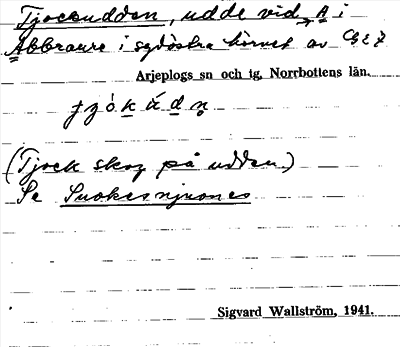 Tjockudden, udde vid A i
Abbraure i sydöstra hörnet av
Arjeplogs sn och tg, Norrbottens län.
(Tjock skog på udden)
Se Suokesnjuones
Sigvard Wallström, 1941.